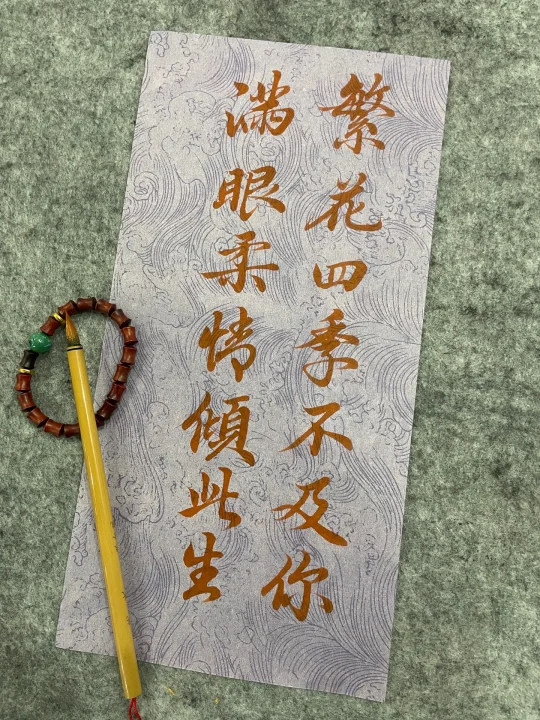 繁花四季不及你
满眼柔情傾此生